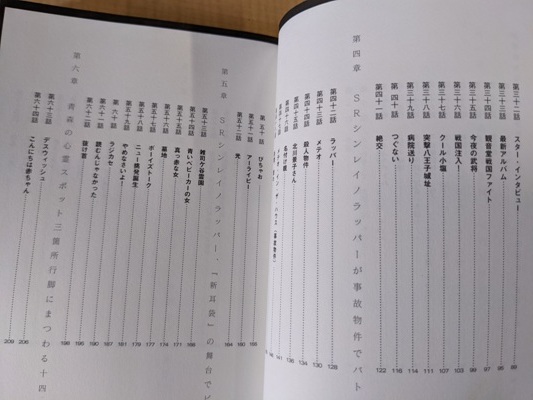 第三十二話 スター・インタビュー 89
第三十三話 最新アルバム 95
第三十四話 観音堂戦国ファイト 97
第三十五話 今夜の武将 98
第三十六話 戦国注入! 103
第三十七話 クール小塩 107
第三十八話 突撃八王子城址 111
第三十九話 病院送り 114
第四十話 つぐない 116
第四十一話 絶交 122
第四章 SRシンレイノラッパーが事故物件でバト
第四十二話 ラッパー 128
第四十三話 メテオ 130
第四十四話 殺人物件 134
第四十五話 北川景子さん 136
第四十六話 名付け親 138
第五十話 びちゃお
第五十一話 アーライビー
第五十二話 光 184
第五章 SRシンレイノラッパー、『新耳袋』の舞台でビ
第五十三話 雑司ケ谷霊園 168
第五十四話 青いベビーカーの女 171
第五十五話 真っ赤な女 174
第五十六話 墓地 177
第五十七話 ボーイズトーク 179
第五十八話 ニュー構発誕生 181
第五十九話 やめなさいよ! 187
第六十話 カシカセ 190
第六十一話 読むんじゃなかった 196
第六十二話 寝げ言 198
第六章 青森の心霊スポット三箇所行脚にまつわる十四
第六十三話 デスウィッシュ 206
第六十四話 こんにちは赤ちゃん 209